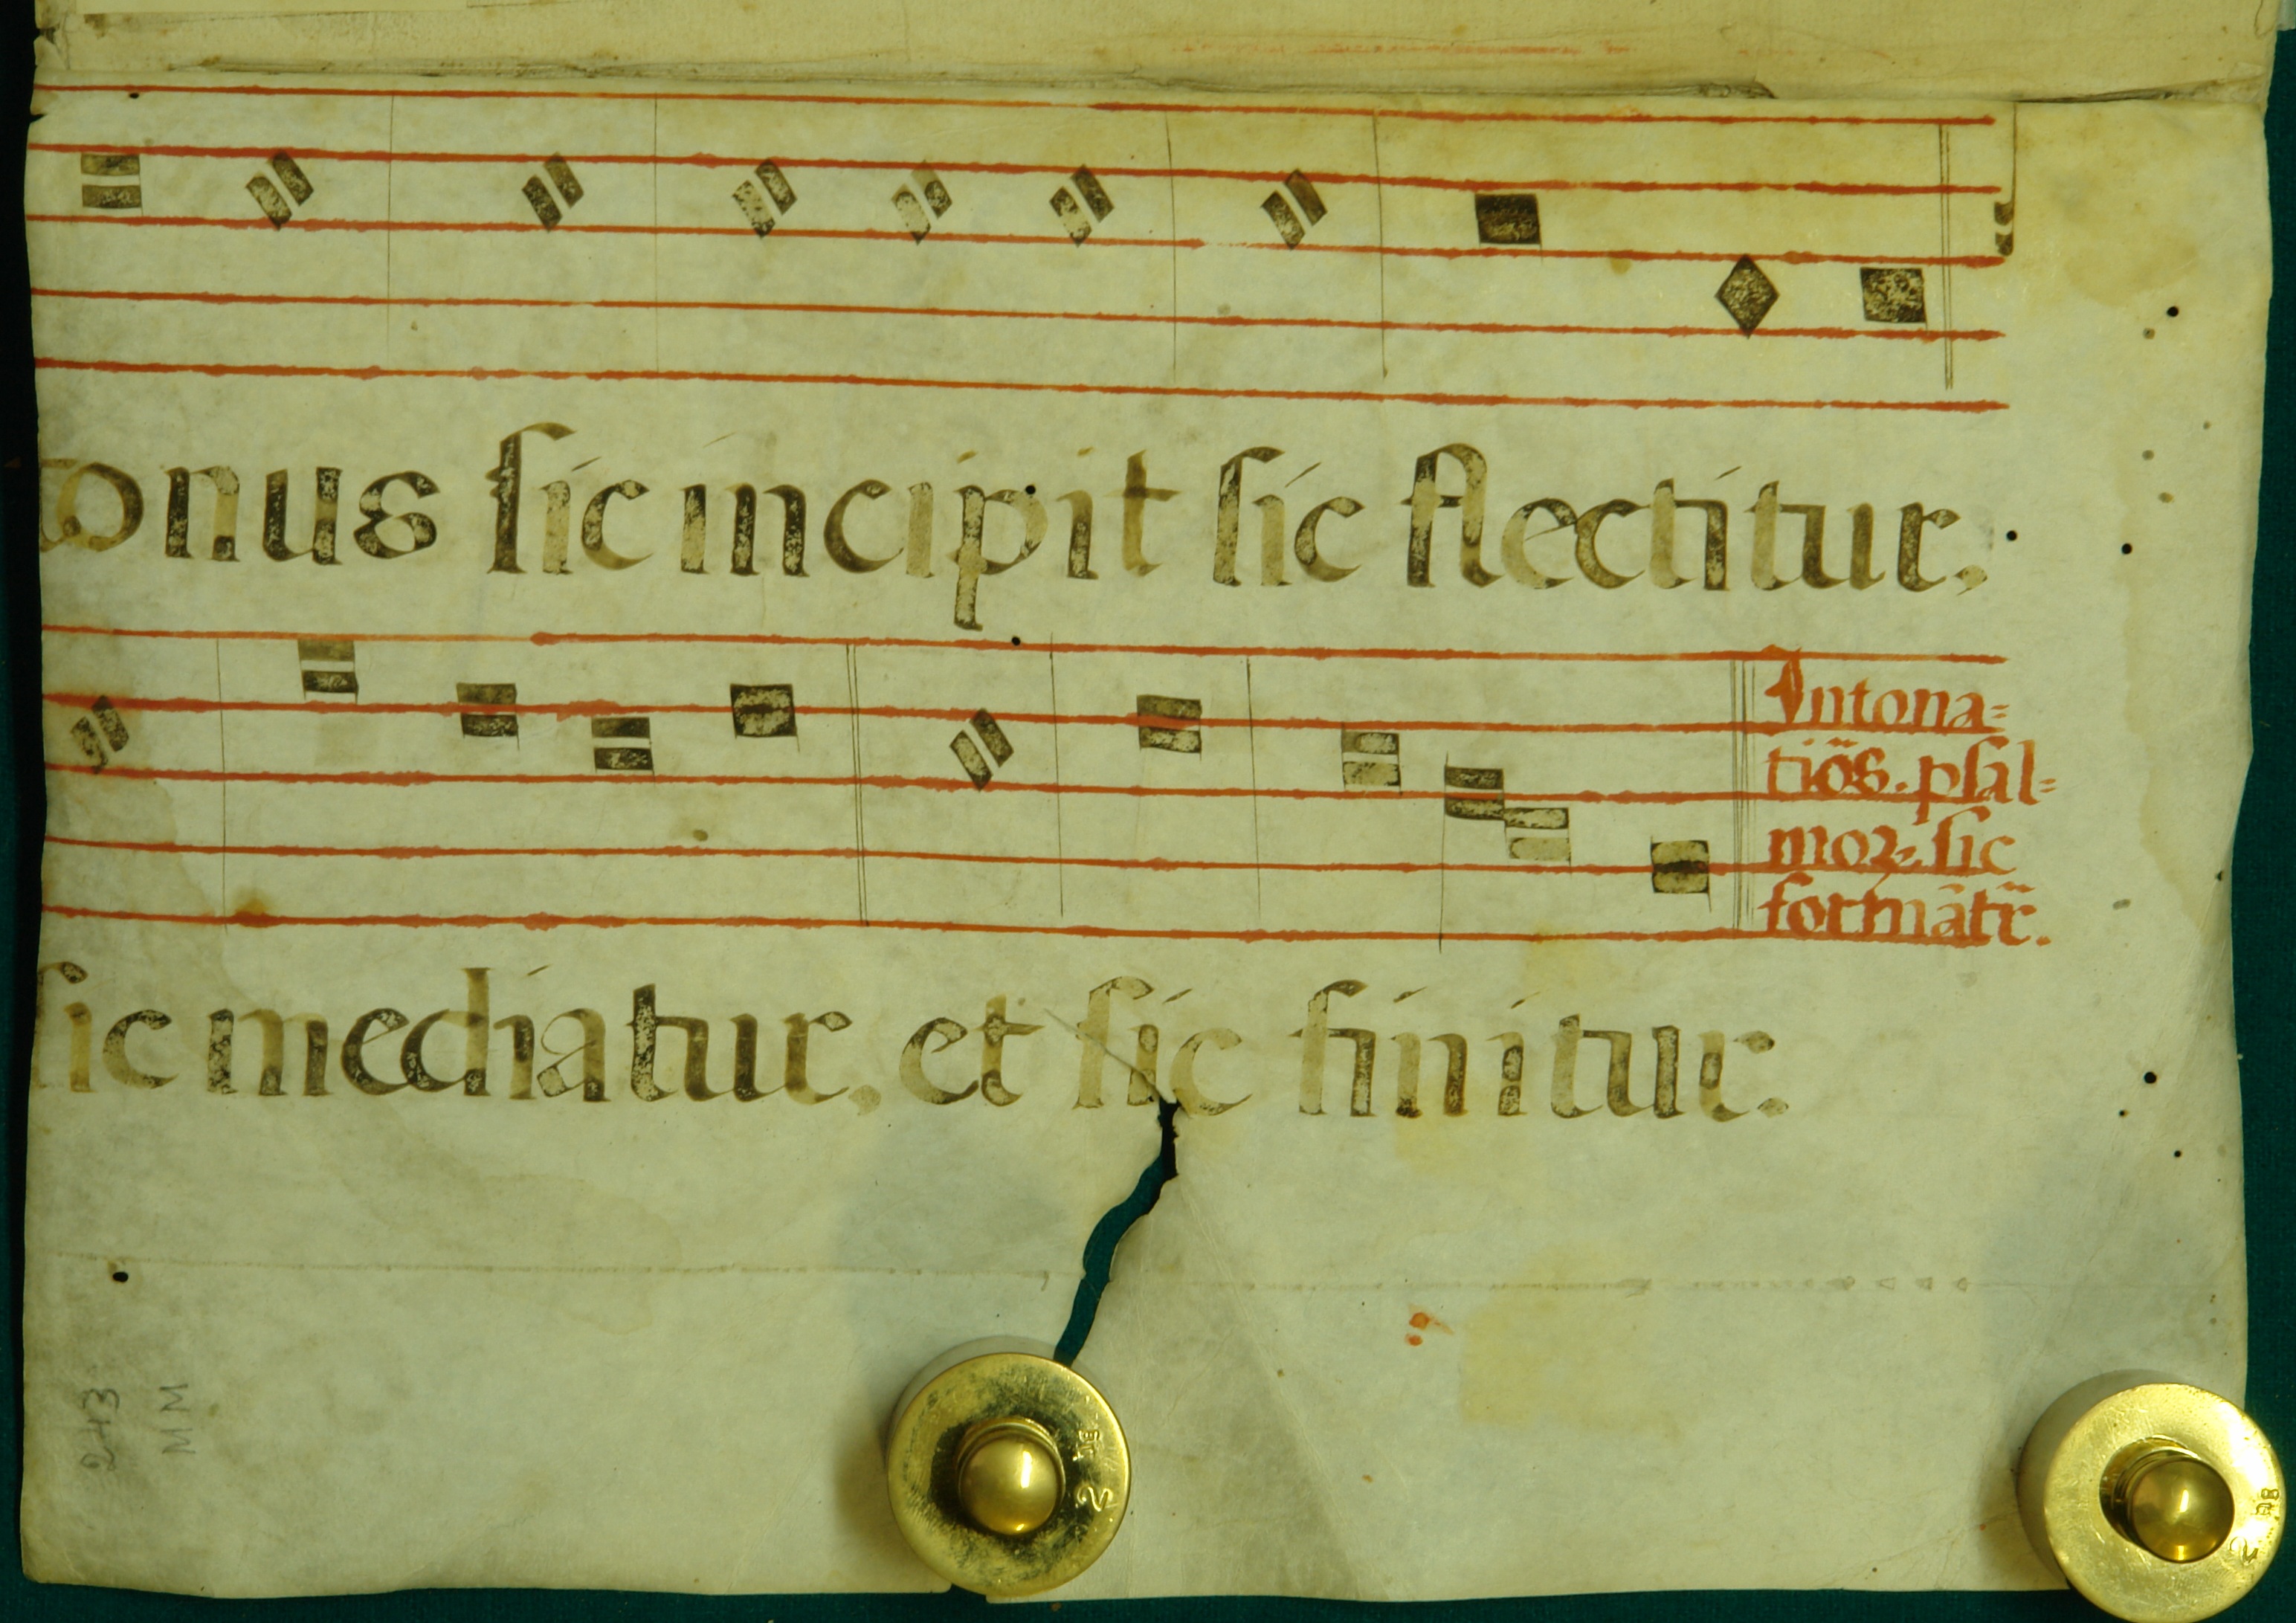 onus sic incipit sic flectitur,
Intona=
tiões. psal=
moꝝ sic
formãtr̃.
sic mediatur, et sic finitur.
243
MM